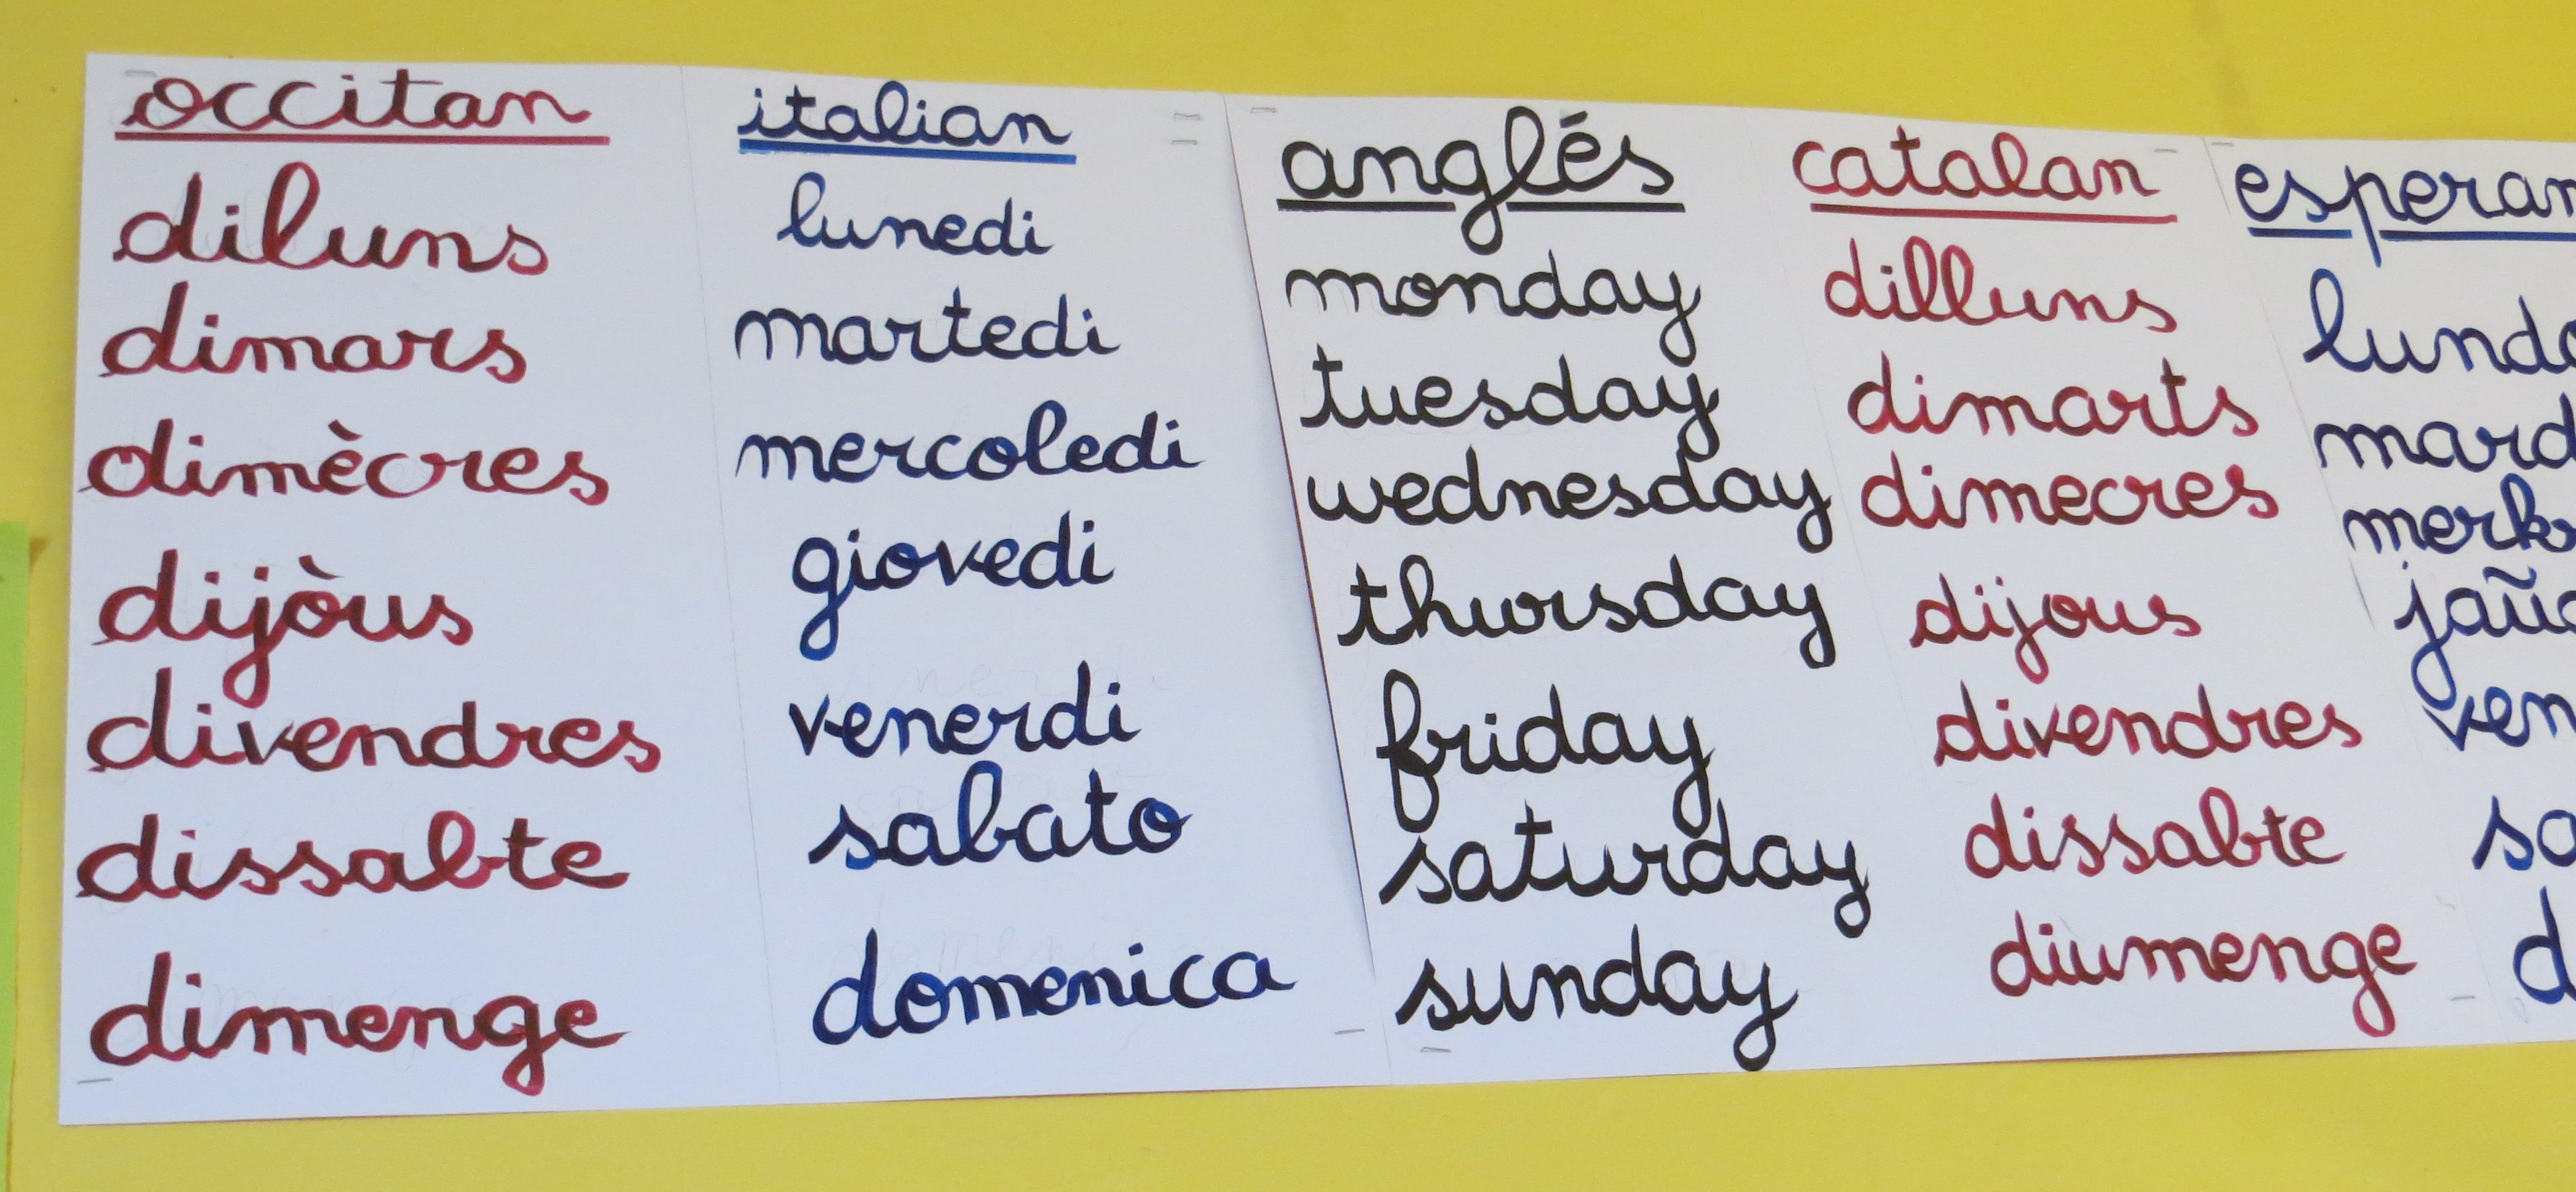 occitan
diluns
dimars
dimècres
dijòus
divendres
dissabte
dimenge
italian
lunedi
martedi
mercoledi
giovedi
venerdi
sabato
domenica
anglés
monday
tuesday
wednesday
thursday
friday
saturday
sunday
catalan
dilluns
dimarts
dimecres
dijous
divendres
dissabte
diumenge
esperan
lundo
mard
merk
jaŭd
ven
sa
d